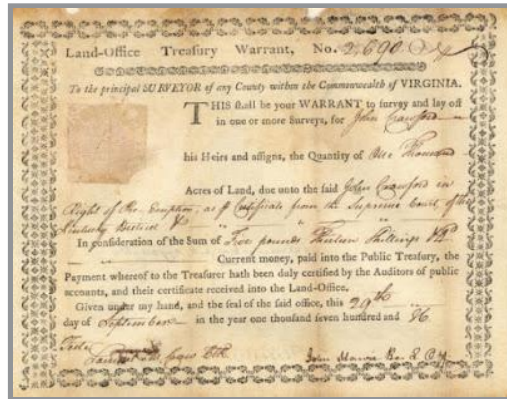 Land-Office Treasury Warrant, No. 2,690
To the principal SURVEYOR of any County within the Commonwealth of VIRGINIA.
THIS shall be your WARRANT to survey and lay off
in one or more Surveys, for John Crawford
his Heirs and assigns, the Quantity of One Thousand
Acres of Land, due unto the said John Crawford in
Right of Pre-Emption, as Certificate from the Supreme Court, of the
Kentucky District
In consideration of the Sum of Five pounds Thirteen Shillings
Current money, paid into the Public Treasury, the
Payment whereof to the Treasurer hath been duly certified by the Auditors of public
accounts, and their certificate received into the Land-Office.
Given under my hand, and the seal of the said office, this 29th
day of September in the year one thousand seven hundred and 86.
John